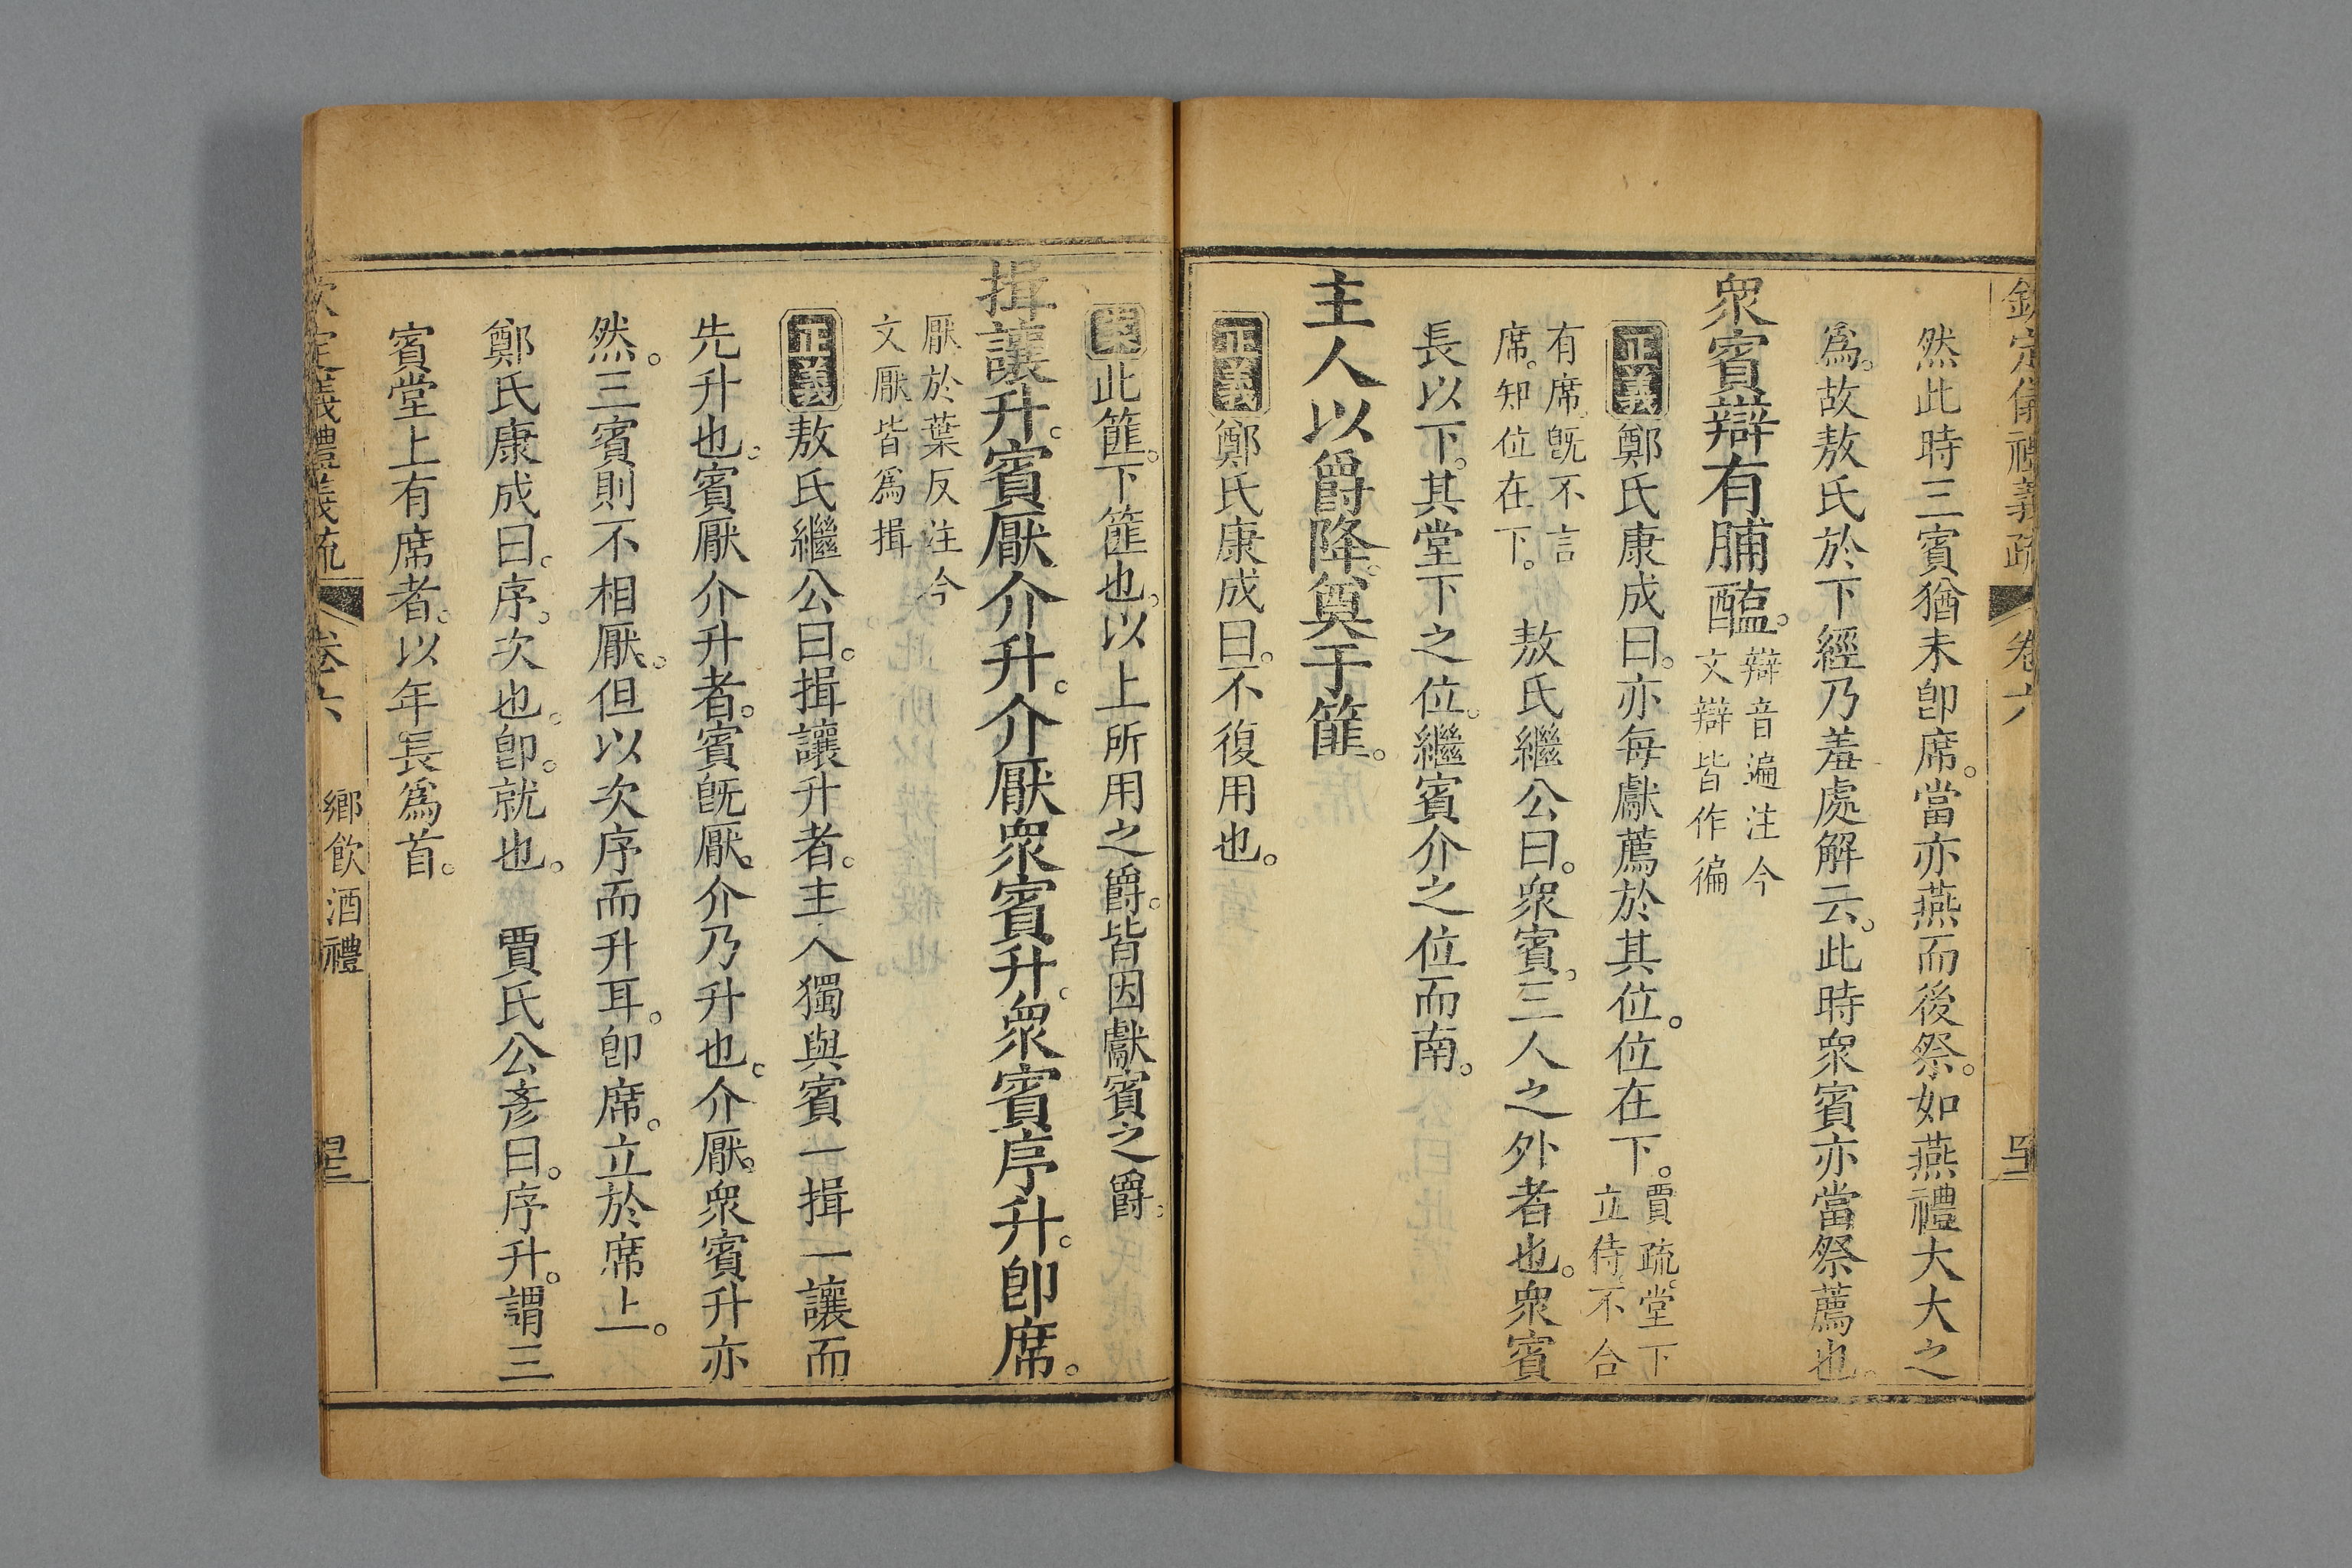 欽定儀禮義疏 卷六
然此時三賓猶未卽席。當亦燕而後祭。如燕禮大大之
爲。故敖氏於下經乃羞處解云。此時衆賓亦當祭薦也。
衆賓辯有脯醢。辯音遍注今
文辯皆作徧
正義鄭氏康成曰。亦每獻薦於其位。位在下。賈疏。堂下
立侍。不合
有席。旣不言
席。知位在下。
敖氏繼公曰。衆賓。三人之外者也。衆賓
長以下。其堂下之位。繼賓介之位而南。
主人以爵降。奠于篚。
正義鄭氏康成曰。不復用也。
此篚。下篚也。以上所用之爵。皆因獻賓之爵。
揖讓升。賓厭介升。介厭衆賓升。衆賓序升。卽席。
厭於葉反注今
文厭皆爲揖
正義敖氏繼公曰。揖讓升者。主人獨與賓一揖一讓而
先升也。賓厭介升者。賓旣厭。介乃升也。介厭。衆賓升亦
然。三賓則不相厭。但以次序而升耳。卽席。立於席上。
鄭氏康成曰。序。次也。卽。就也。 賈氏公彥曰。序升。謂三
賓堂上有席者。以年長爲首。
欽定儀禮義疏 卷六 鄉飮酒禮